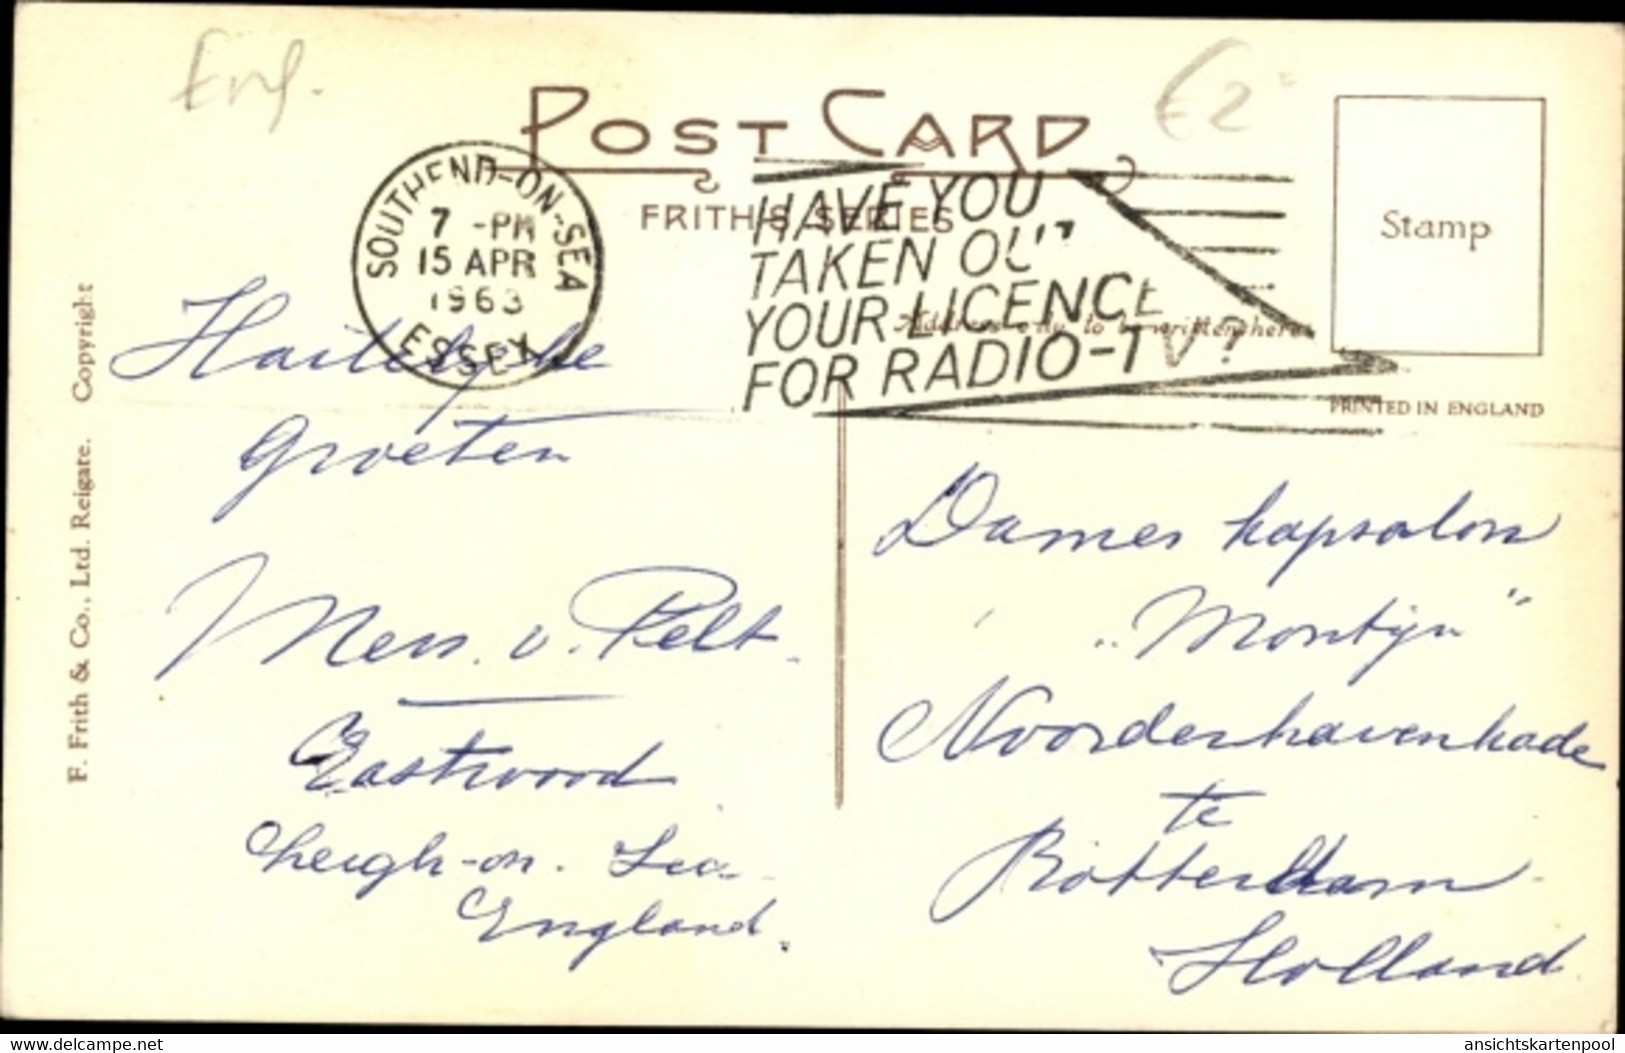 Eng.
€2
POST CARD
FRITH'S SERIES
SOUTHEND-ON-SEA
7 -PM
15 APR
1963
ESSEX
HAVE YOU
TAKEN OUT
YOUR LICENCE
FOR RADIO-TV?
Stamp
Address only to be written here
PRINTED IN ENGLAND
F. Frith & Co., Ltd. Reigate. Copyright
Hartelyke
Groeten
Mevr. v. Pelt.
Eastwood
Leigh-on-Sea
England.
Dames kapsalon
"Montijn"
Noorderhavenkade
te
Rotterdam
Holland
ansichtskartenpool